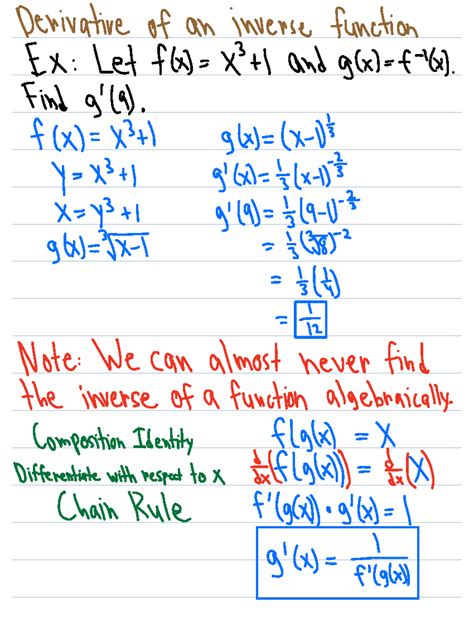 Derivative of an inverse function
Ex: Let f(x) = x³+1 and g(x)=f⁻¹(x).
Find g'(9).
f(x) = x³+1
y = x³+1
x = y³+1
g(x) = ∛(x-1)
g(x) = (x-1)^(1/3)
g'(x) = 1/3 (x-1)^(-2/3)
g'(9) = 1/3 (9-1)^(-2/3)
= 1/3 (∛8)^(-2)
= 1/3 (1/4)
= 1/12
Note: We can almost never find
the inverse of a function algebraically.
Composition Identity
f(g(x)) = x
Differentiate with respect to x
d/dx (f(g(x))) = d/dx (x)
Chain Rule
f'(g(x)) · g'(x) = 1
g'(x) = 1/f'(g(x))